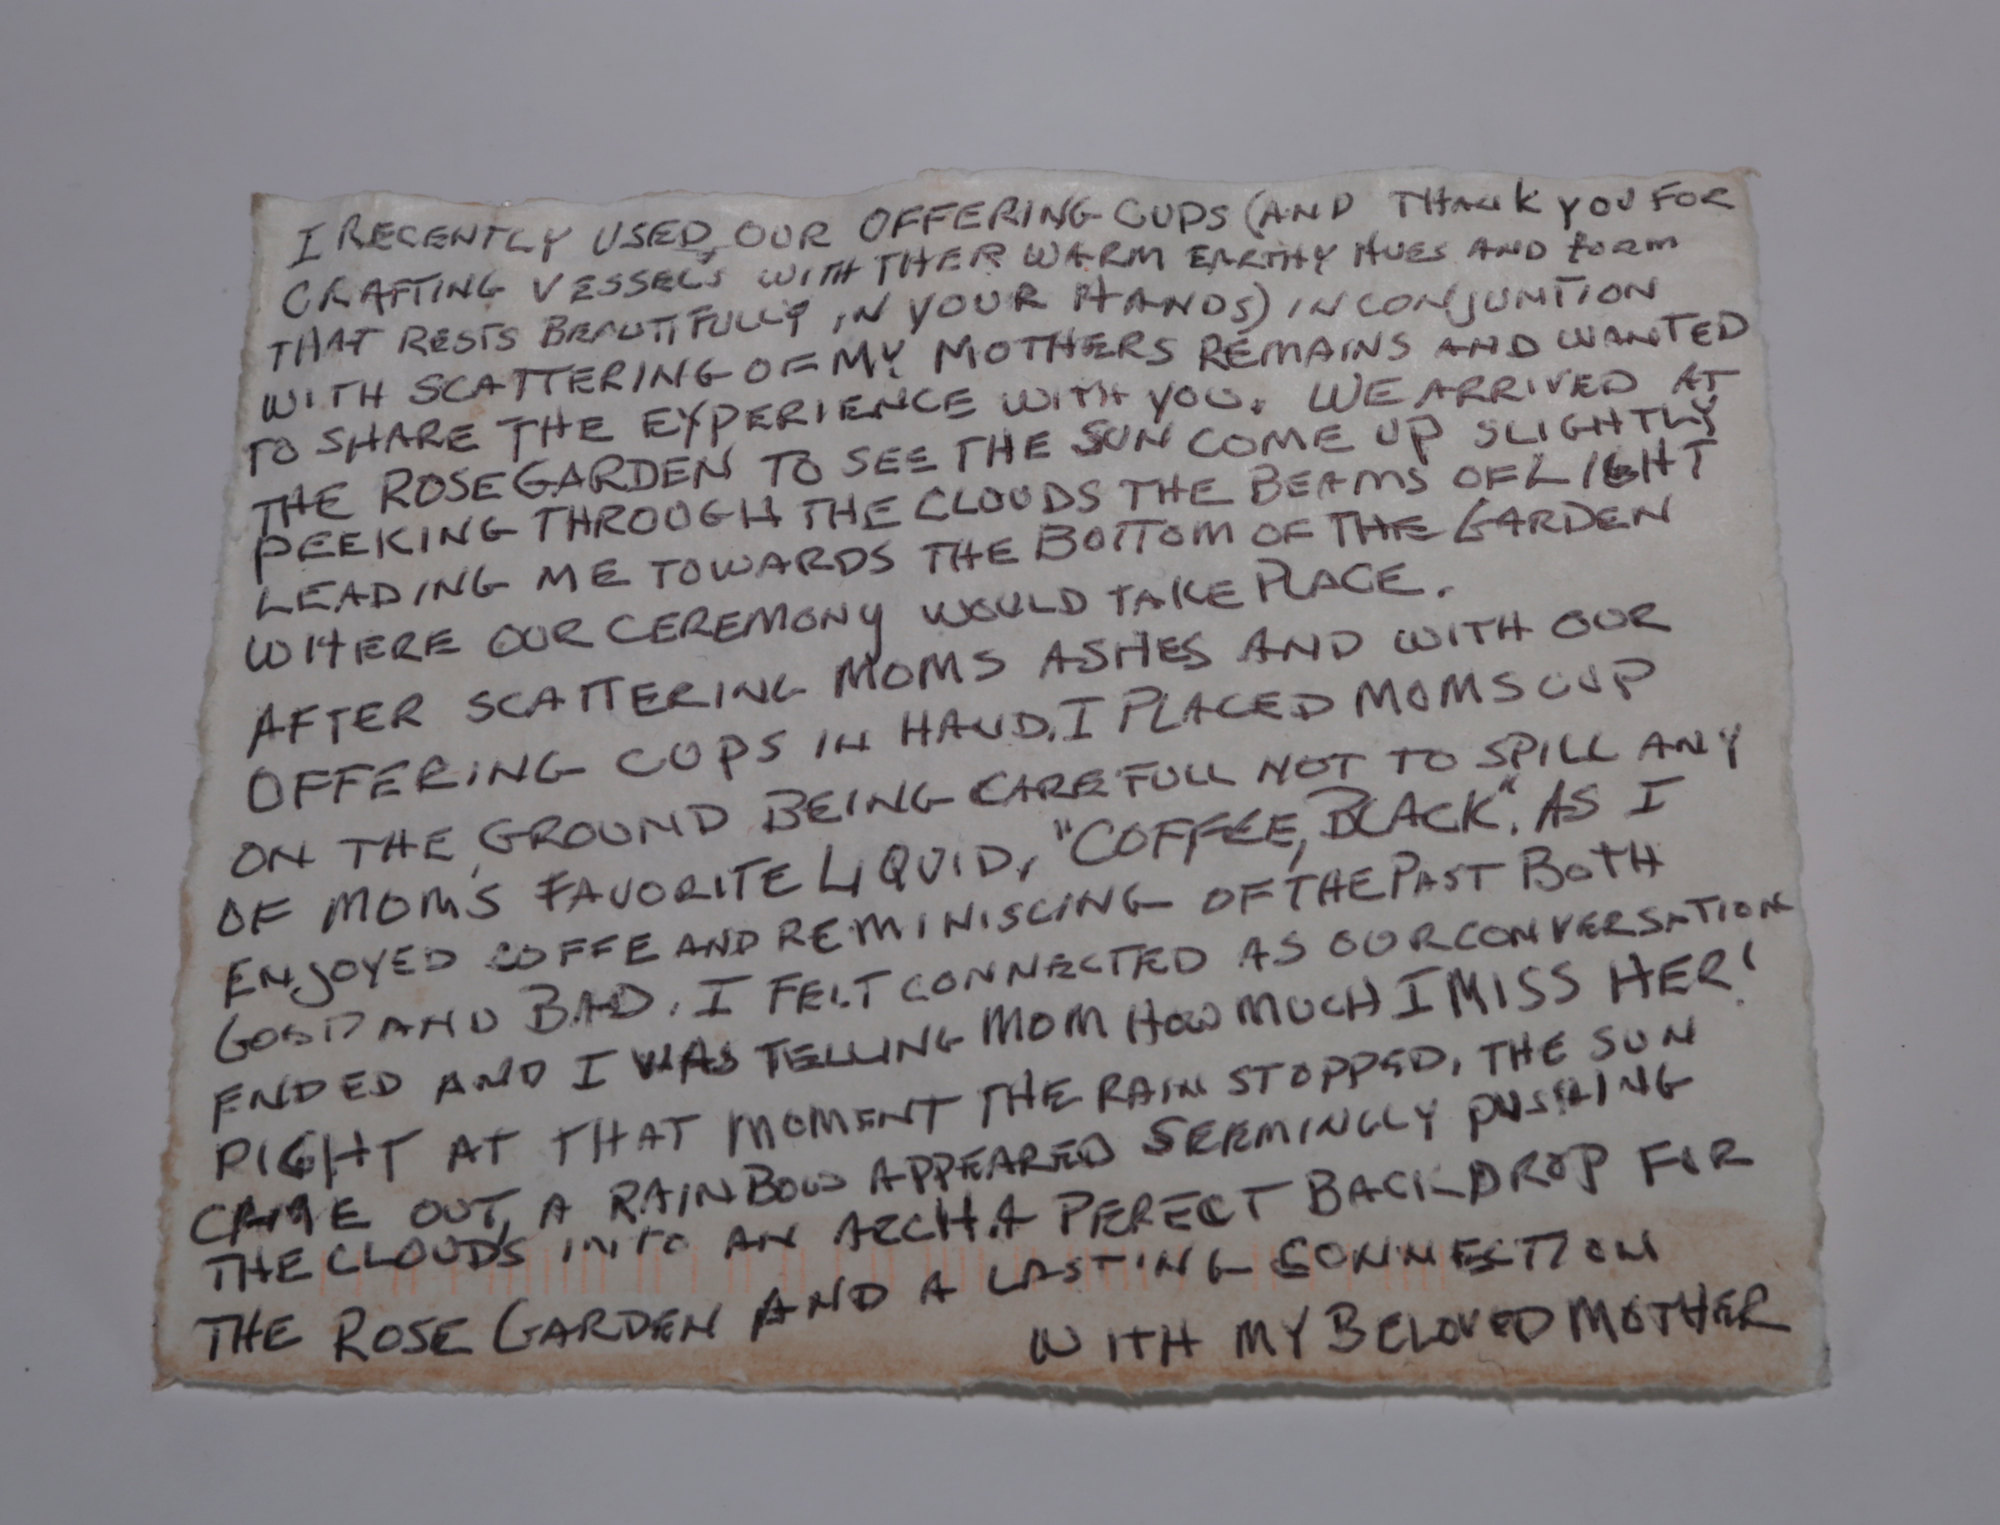 I RECENTLY USED OUR OFFERING CUPS (AND THANK YOU FOR
CRAFTING VESSELS WITH THER WARM EARTHY HUES AND FORM
THAT RESTS BEAUTIFULLY IN YOUR HANDS) IN CONJUNTION
WITH SCATTERING OF MY MOTHERS REMAINS AND WANTED
TO SHARE THE EXPERIENCE WITH YOU. WE ARRIVED AT
THE ROSE GARDEN TO SEE THE SUN COME UP SLIGHTLY
PEEKING THROUGH THE CLOUDS THE BEAMS OF LIGHT
LEADING ME TOWARDS THE BOTTOM OF THE GARDEN
WHERE OUR CEREMONY WOULD TAKE PLACE.
AFTER SCATTERING MOMS ASHES AND WITH OUR
OFFERING CUPS IN HAND, I PLACED MOMS CUP
ON THE GROUND BEING CAREFULL NOT TO SPILL ANY
OF MOM'S FAVORITE LIQUID, "COFFEE, BLACK". AS I
ENJOYED COFFE AND REMINISCING OF THE PAST BOTH
GOOD AND BAD. I FELT CONNECTED AS OUR CONVERSATION
ENDED AND I WAS TELLING MOM HOW MUCH I MISS HER!
RIGHT AT THAT MOMENT THE RAIN STOPPED, THE SUN
CAME OUT, A RAINBOW APPEARED SEEMINGLY PUSHING
THE CLOUDS INTO AN ARCH. A PERECT BACKDROP FOR
THE ROSE GARDEN AND A LASTING CONNECTION
WITH MY BELOVED MOTHER